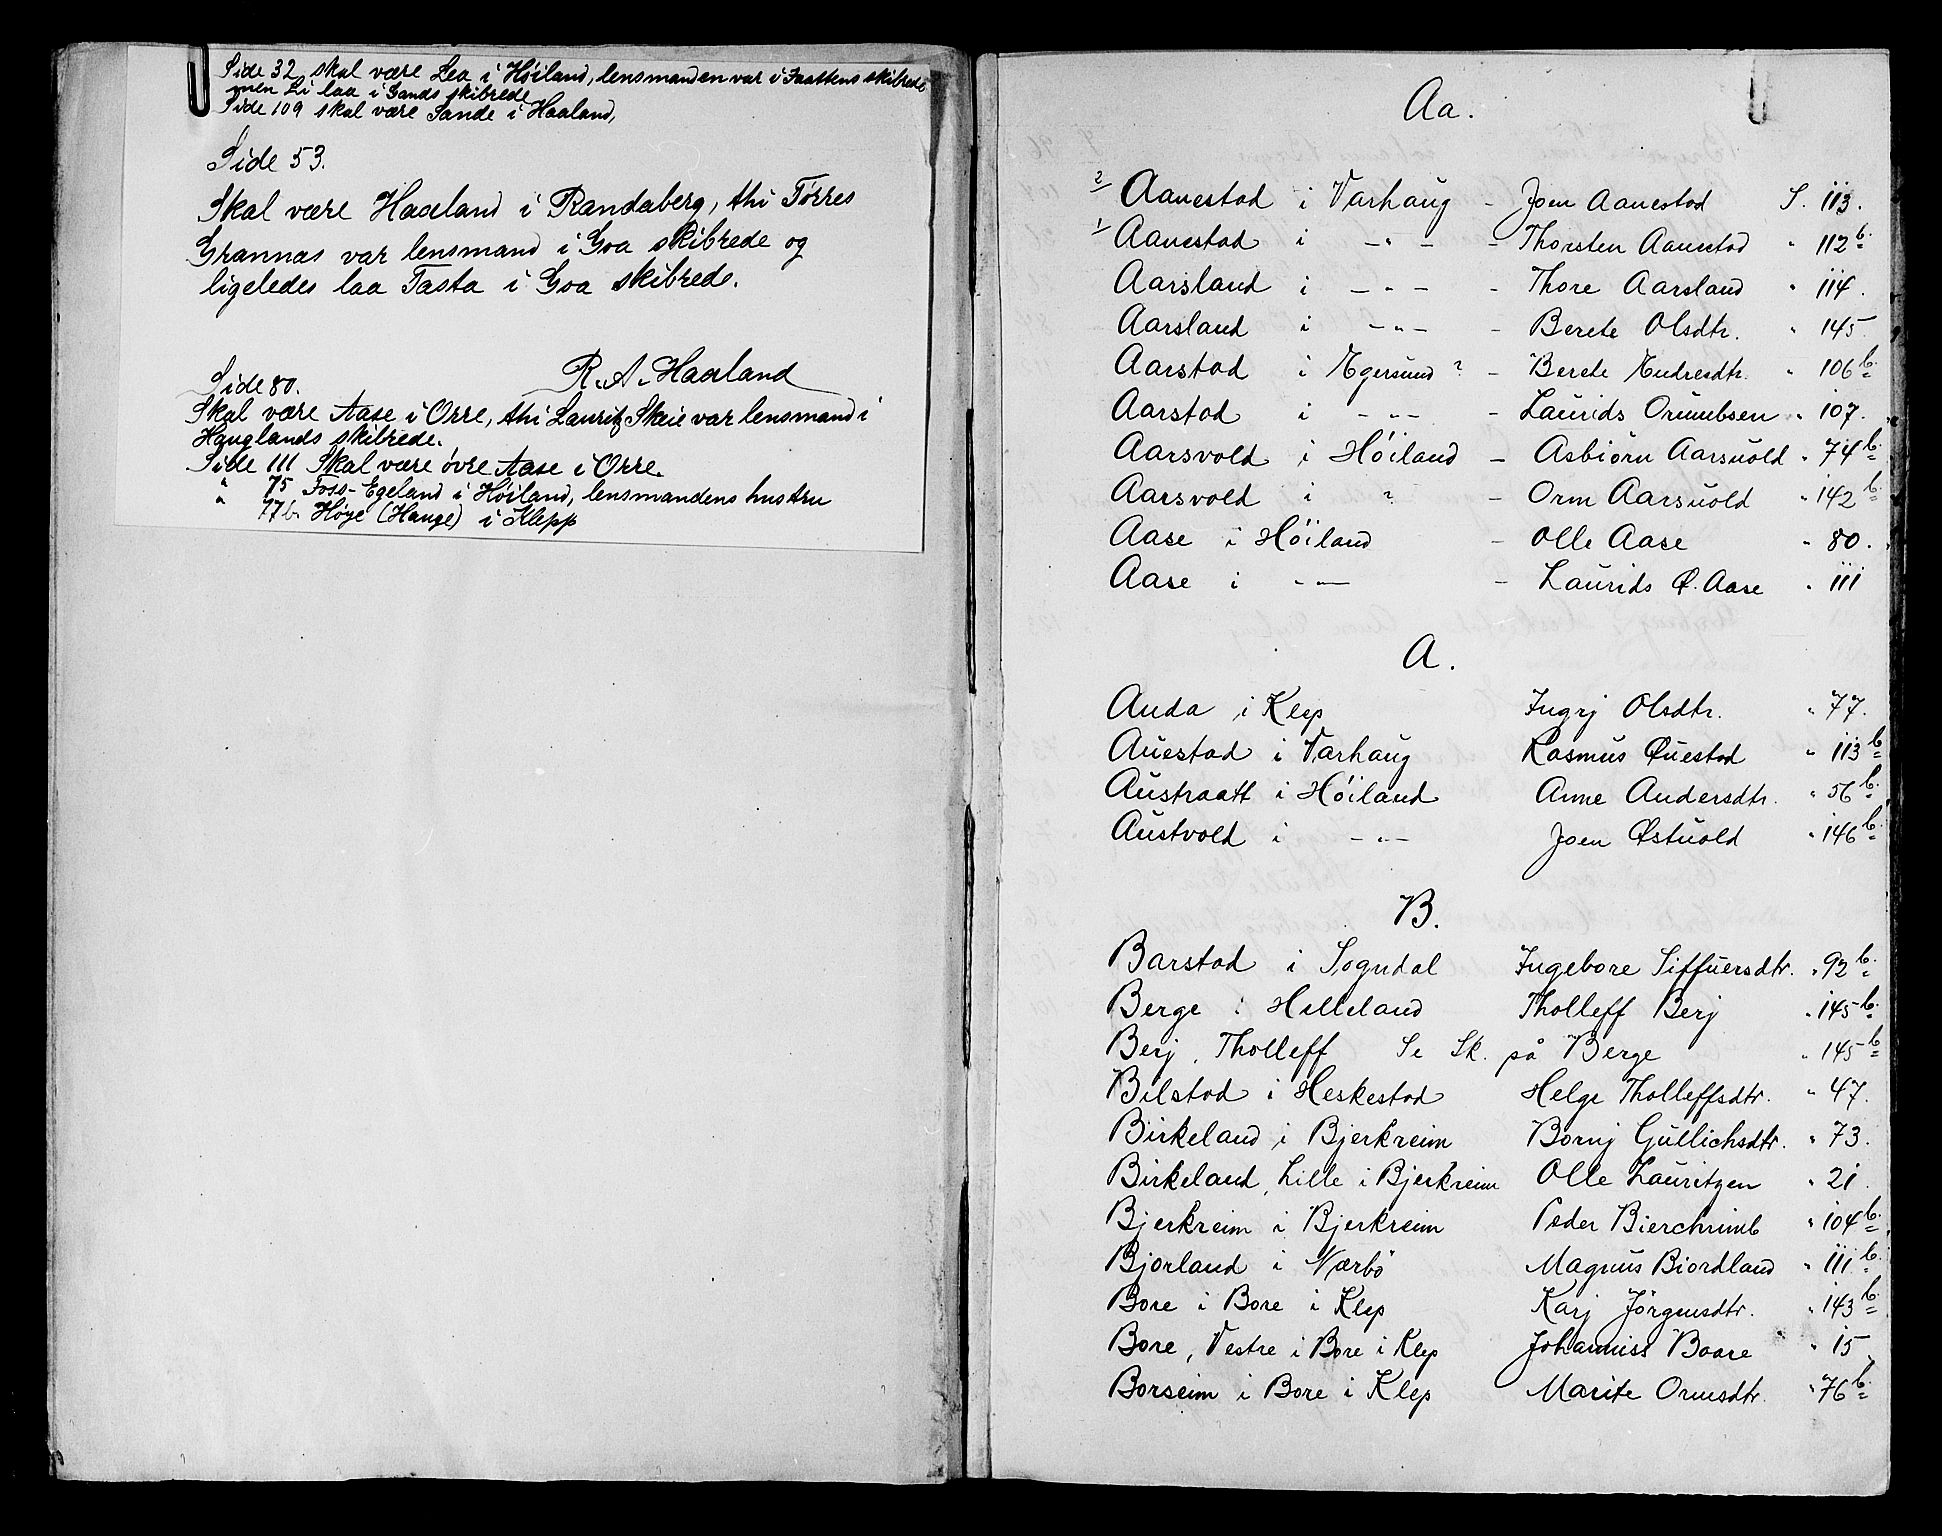 Side 32 skal være Lea i Höiland, lensmanden var i Jaattens skibrede
men Li laa i Gands skibrede
Side 109 skal være Sande i Haaland,
Side 53.
Skal være Haaland i Randaberg, thi Tørres
Grannas var lensmand i Goa skibrede og
ligeledes laa Tasta i Goa skibrede.
R. A. Haaland
Side 80.
Skal være Aase i Orre, thi Lauritz Skeie var lensmand i
Hauglands skibrede.
Side 111 Skal være övre Aase i Orre.
" 75 Foss-Egeland i Höiland, lensmandens hustru
" 77b. Høye (Hauge) i Klepp
Aa.
2/ Aanestad i Varhaug - Joen Aanestad S. 113.
1/ Aanestad i - " - - Thorsten Aanestad " 112 b.
Aarsland i - " - - Thore Aarsland " 114.
Aarsland i - " - - Berete Olsdtr. " 145
Aarstad i Egersund ? - Berete Endresdtr. " 106 b.
Aarstad i - " - - Laurids Orumbsen " 107.
Aarsvold i Höiland - Asbiörn Aarsuold " 74 b.
Aarsvold i ? - Orm Aarsuold " 142 b.
Aase i Höiland - Olle Aase " 80.
Aase i - " - - Laurids Ø. Aase " 111
A.
Auda i Klep Ingrj Olsdtr. " 77.
Auestad i Varhaug Rasmus Øuestad " 113 b.
Austraatt i Höiland Anne Andersdtr. " 56 b.
Austvold i - " - Joen Østuold " 146 b.
B.
Barstad i Sogndal Ingebore Siffuersdtr. " 92 b.
Berge i Helleland Tholleff Berj " 145 b.
Berj, Tholleff Se Sk. på Berge " 145 b.
Bilstad i Heskestad Helge Tholleffsdtr. " 47.
Birkeland i Bjerkreim Bornj Gullichsdtr. " 73.
Birkeland, Lille i Bjerkreim Olle Lauritzen " 21.
Bjerkreim i Bjerkreim Peder Bierchrimb " 104 b.
Bjorland i Nærbö Magnus Biordland " 111 b.
Bore i Bore i Klep Karj Jörgensdtr. " 143 b.
Bore, Vestre i Bore i Klep Johanniss Boore " 15.
Borseim i Bore i Klep Marite Ormsdtr. " 76 b.